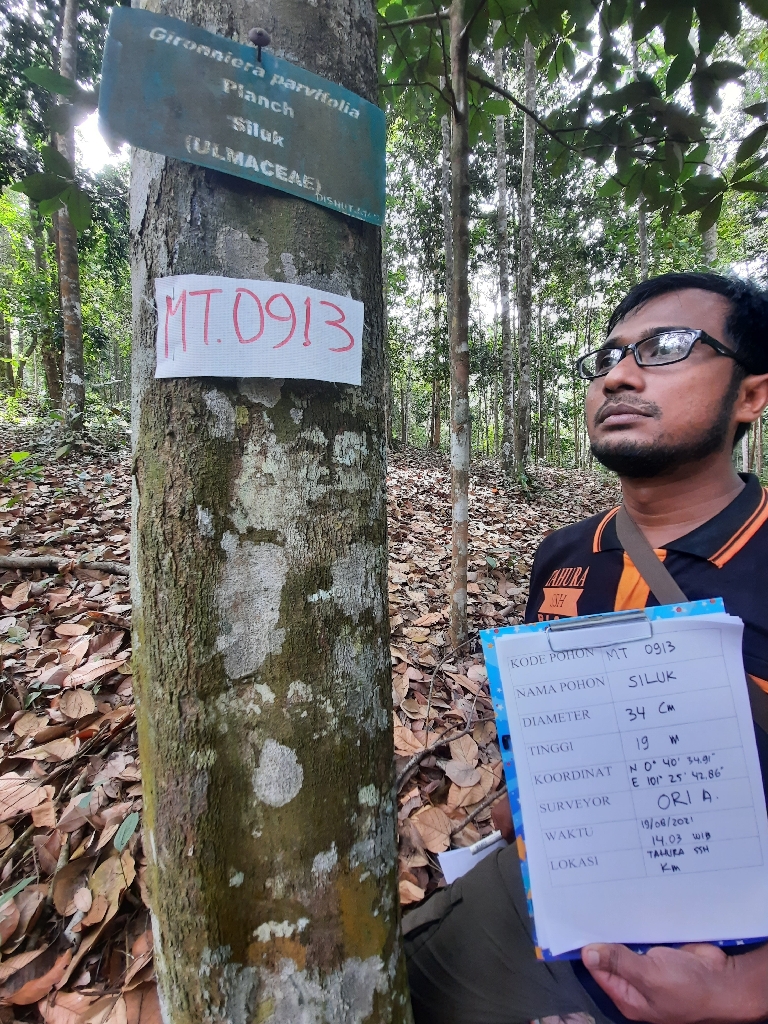 Gironniera parvifolia
Planch
Siluk
(ULMACEAE)
MT.0913
TAHURA
SSH
KODE POHON MT 0913
NAMA POHON SILUK
DIAMETER 34 Cm
TINGGI 19 m
KOORDINAT N 0° 40' 34.91" E 101° 25' 42.86"
SURVEYOR ORI A.
WAKTU 19/08/2021 14.03 WIB
LOKASI TAHURA SSH Km